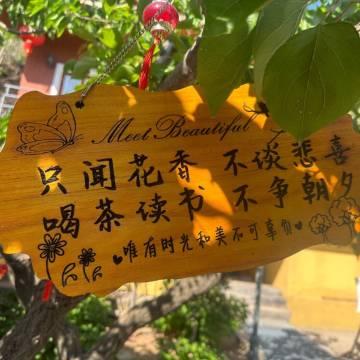 Meet Beautiful
只闻花香 不谈悲喜
喝茶读书 不争朝夕
唯有时光和美不可辜负